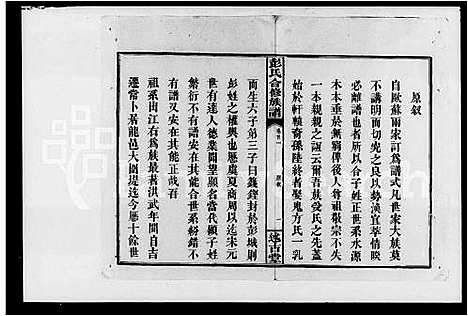 原叙
自歐蘇兩宗訂為譜式凡世家大族莫
不講明而切究之良以勢遠宜萃情暌
必離譜也者所以合子姓正世系水源
木本垂於無窮俾後人尊祖敬宗不失
一本親親之誼云爾吾族受氏之先蓋
始於軒轅裔孫陸終者娶鬼方氏一乳
彭氏合修族譜
卷首一
原叙
一
述古堂
而生六子第三子曰籛鏗封於彭城則
彭姓之權輿也歷虞夏商周以迄宋元
世有達人德業聞望顯名當代顧子姓
繁衍不有譜安在其能合世系紛錯不
有譜又安在其能正哉吾
祖系出江右為族最著洪武年間自吉
遷常卜居龍邑大圍堤迄今歷十餘世